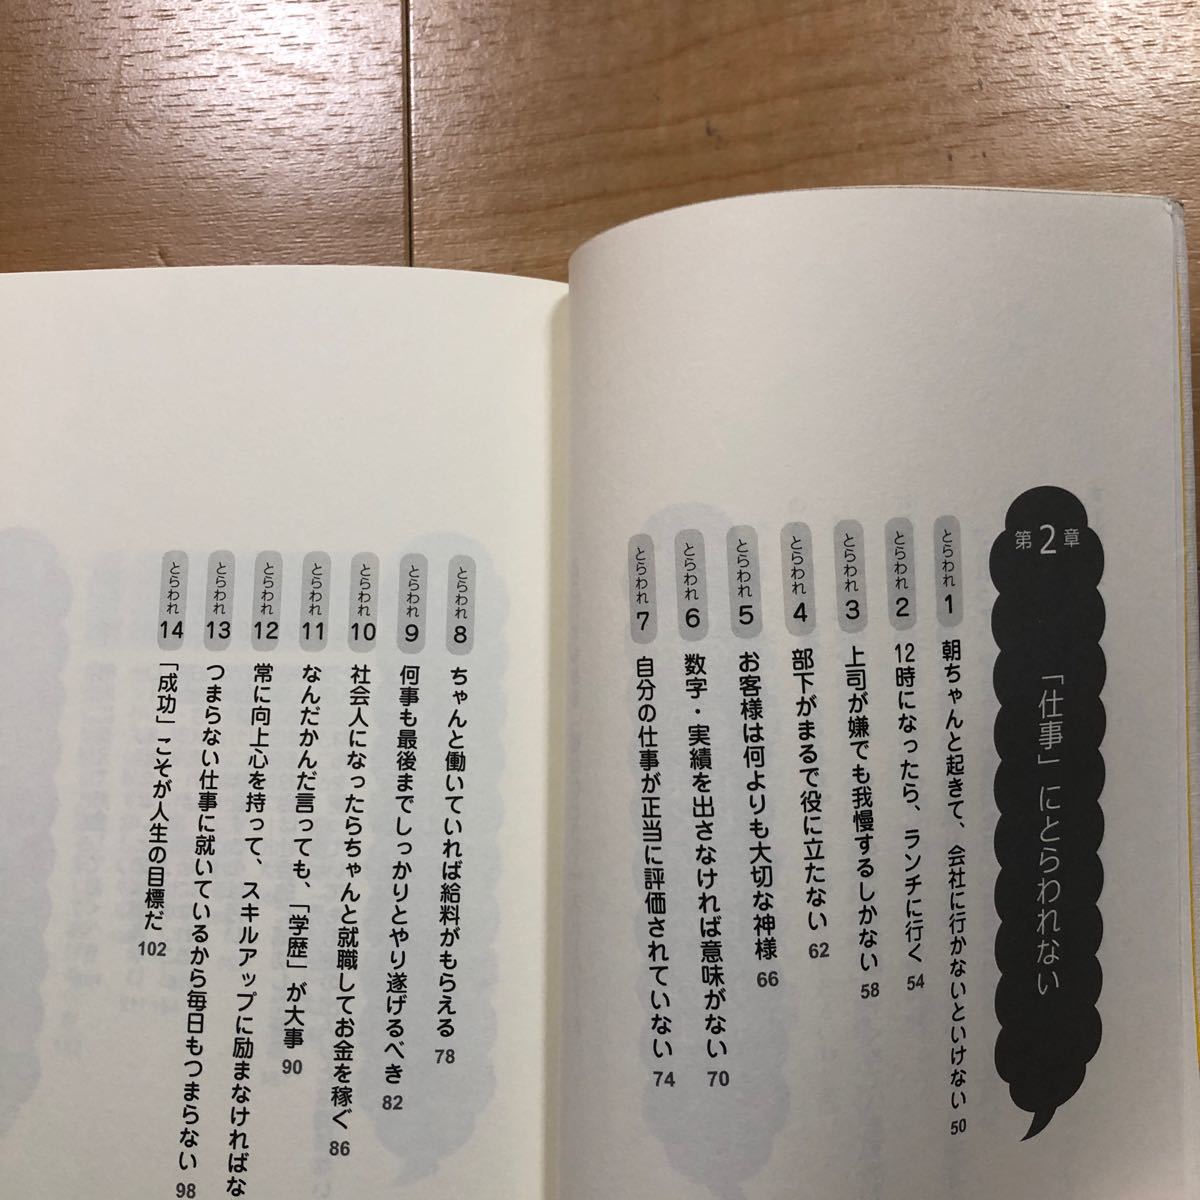 第2章
「仕事」にとらわれない
とらわれ 1 朝ちゃんと起きて、会社に行かないといけない 50
とらわれ 2 12時になったら、ランチに行く 54
とらわれ 3 上司が嫌でも我慢するしかない 58
とらわれ 4 部下がまるで役に立たない 62
とらわれ 5 お客様は何よりも大切な神様 66
とらわれ 6 数字・実績を出さなければ意味がない 70
とらわれ 7 自分の仕事が正当に評価されていない 74
とらわれ 8 ちゃんと働いていれば給料がもらえる 78
とらわれ 9 何事も最後までしっかりとやり遂げるべき 82
とらわれ 10 社会人になったらちゃんと就職してお金を稼ぐ 86
とらわれ 11 なんだかんだ言っても、「学歴」が大事 90
とらわれ 12 常に向上心を持って、スキルアップに励まなければな
とらわれ 13 つまらない仕事に就いているから毎日もつまらない 98
とらわれ 14 「成功」こそが人生の目標だ 102